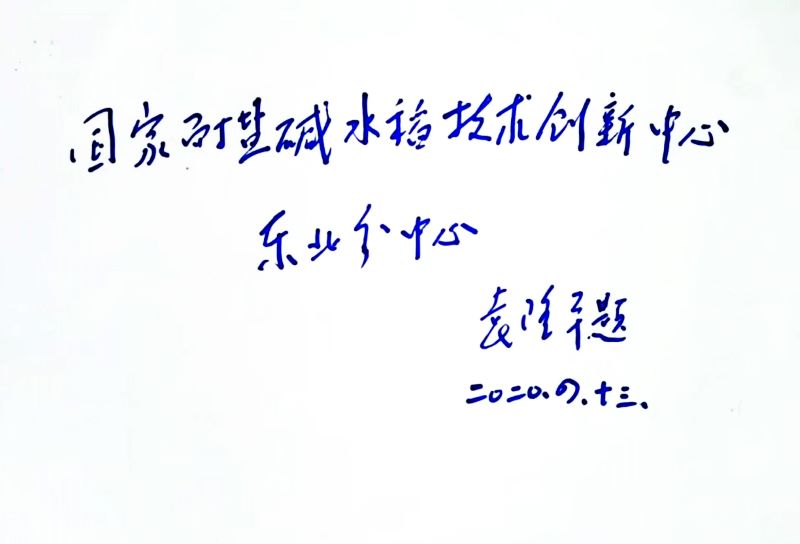 国家耐盐碱水稻技术创新中心
东北分中心
袁隆平题
二〇二〇.四.十三.